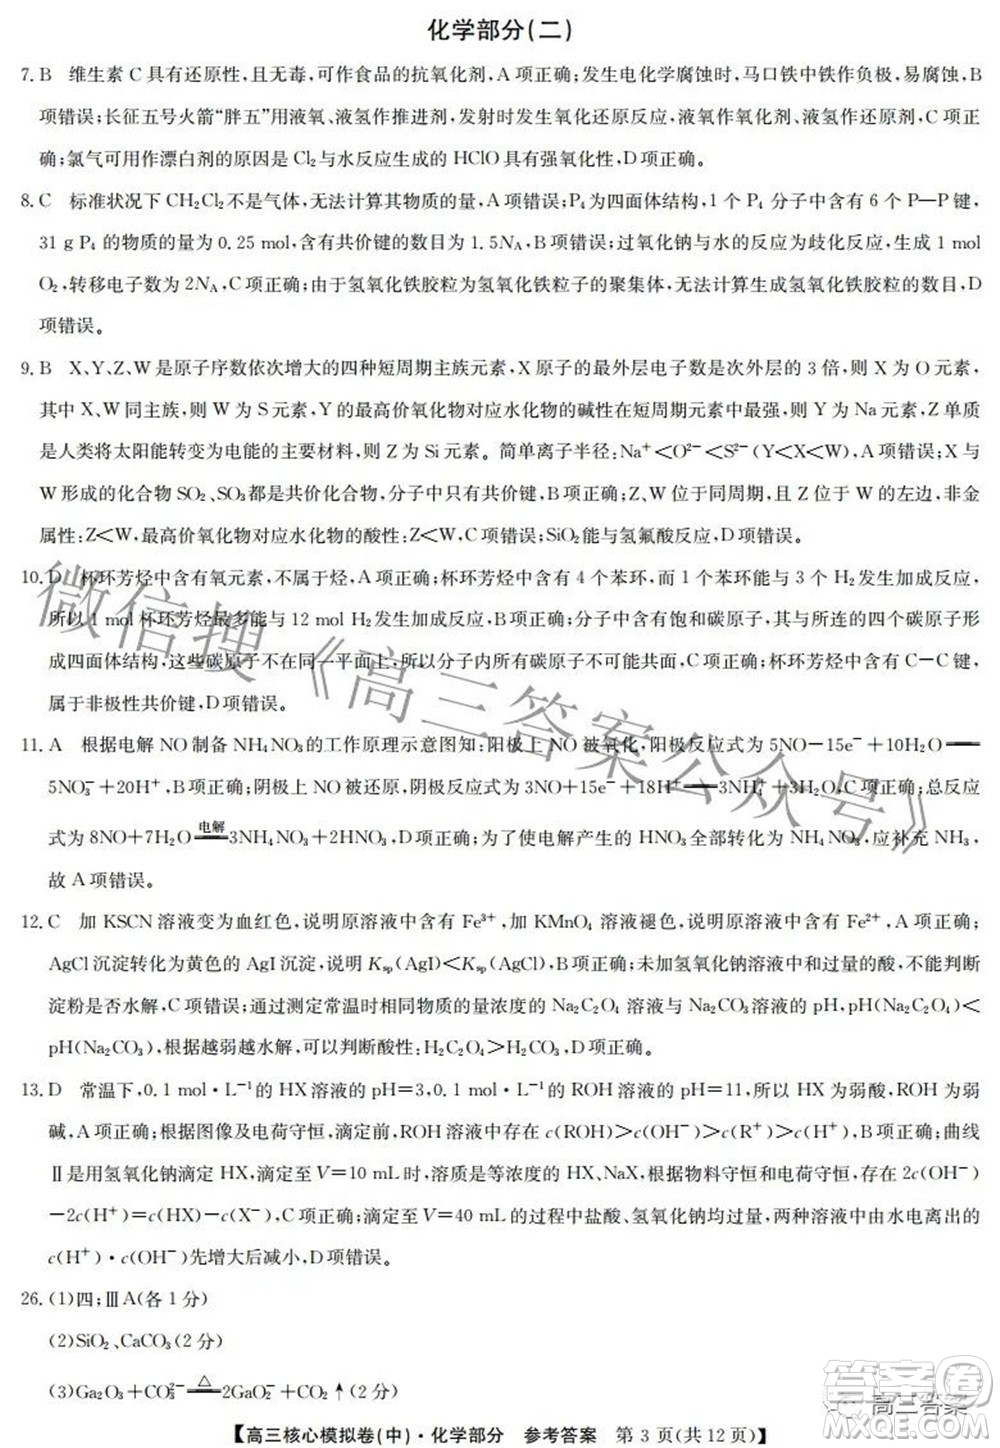 化学部分(二)
7. B　维生素 C 具有还原性,且无毒,可作食品的抗氧化剂,A 项正确;发生电化学腐蚀时,马口铁中铁作负极,易腐蚀,B
项错误;长征五号火箭“胖五”用液氧、液氢作推进剂,发射时发生氧化还原反应,液氧作氧化剂、液氢作还原剂,C 项正
确;氯气可用作漂白剂的原因是 Cl₂ 与水反应生成的 HClO 具有强氧化性,D 项正确。
8. C　标准状况下 CH₂Cl₂ 不是气体,无法计算其物质的量,A 项错误;P₄ 为四面体结构,1 个 P₄ 分子中含有 6 个 P—P 键,
31 g P₄ 的物质的量为 0.25 mol,含有共价键的数目为 1.5Nₐ,B 项错误;过氧化钠与水的反应为歧化反应,生成 1 mol
O₂,转移电子数为 2Nₐ,C 项正确;由于氢氧化铁胶粒为氢氧化铁粒子的聚集体,无法计算生成氢氧化铁胶粒的数目,D
项错误。
9. B　X、Y、Z、W 是原子序数依次增大的四种短周期主族元素,X 原子的最外层电子数是次外层的 3 倍,则 X 为 O 元素,
其中 X、W 同主族,则 W 为 S 元素,Y 的最高价氧化物对应水化物的碱性在短周期元素中最强,则 Y 为 Na 元素,Z 单质
是人类将太阳能转变为电能的主要材料,则 Z 为 Si 元素。简单离子半径:Na⁺<O²⁻<S²⁻(Y<X<W),A 项错误;X 与
W 形成的化合物 SO₂、SO₃ 都是共价化合物,分子中只有共价键,B 项正确;Z、W 位于同周期,且 Z 位于 W 的左边,非金
属性:Z<W,最高价氧化物对应水化物的酸性:Z<W,C 项错误;SiO₂ 能与氢氟酸反应,D 项错误。
10. D　杯环芳烃中含有氧元素,不属于烃,A 项正确;杯环芳烃中含有 4 个苯环,而 1 个苯环能与 3 个 H₂ 发生加成反应,
所以 1 mol 杯环芳烃最多能与 12 mol H₂ 发生加成反应,B 项正确;分子中含有饱和碳原子,其与所连的四个碳原子形
成四面体结构,这些碳原子不可能在同一平面上,所以分子内所有碳原子不可能共面,C 项正确;杯环芳烃中含有 C—C 键,
属于非极性共价键,D 项错误。
11. A　根据电解 NO 制备 NH₄NO₃ 的工作原理示意图知:阳极上 NO 被氧化,阳极反应式为 5NO－15e⁻＋10H₂O══
5NO₃⁻＋20H⁺,B 项正确;阴极上 NO 被还原,阴极反应式为 3NO＋15e⁻＋18H⁺══3NH₄⁺＋3H₂O,C 项正确;总反应
式为 8NO＋7H₂O 电解══ 3NH₄NO₃＋2HNO₃,D 项正确;为了使电解产生的 HNO₃ 全部转化为 NH₄NO₃,应补充 NH₃,
故 A 项错误。
12. C　加 KSCN 溶液变为血红色,说明原溶液中含有 Fe³⁺,加 KMnO₄ 溶液褪色,说明原溶液中含有 Fe²⁺,A 项正确;
AgCl 沉淀转化为黄色的 AgI 沉淀,说明 Kₛₚ(AgI)<Kₛₚ(AgCl),B 项正确;未加氢氧化钠溶液中和过量的酸,不能判断
淀粉是否水解,C 项错误;通过测定常温时相同物质的量浓度的 Na₂C₂O₄ 溶液与 Na₂CO₃ 溶液的 pH,pH(Na₂C₂O₄)<
pH(Na₂CO₃),根据越弱越水解,可以判断酸性:H₂C₂O₄>H₂CO₃,D 项正确。
13. D　常温下,0.1 mol·L⁻¹ 的 HX 溶液的 pH=3,0.1 mol·L⁻¹ 的 ROH 溶液 pH=11,所以 HX 为弱酸,ROH 为弱
碱,A 项正确;根据图像及电荷守恒,滴定前,ROH 溶液中存在 c(ROH)>c(OH⁻)>c(R⁺)>c(H⁺),B 项正确;曲线
Ⅱ是用氢氧化钠滴定 HX,当滴定至 V=10 mL 时,溶质是等浓度的 HX、NaX,根据物料守恒和电荷守恒,存在 2c(OH⁻)
－2c(H⁺)=c(HX)－c(X⁻),C 项正确;滴定至 V=40 mL 的过程中盐酸、氢氧化钠均过量,两种溶液中由水电离出的
c(H⁺)·c(OH⁻)先增大后减小,D 项错误。
26. (1)四;ⅢA(各 1 分)
(2)SiO₂、CaCO₃(2 分)
(3)Ga₂O₃＋CO₃²⁻ △══ 2GaO₂⁻＋CO₂↑(2 分)
【高三核心模拟卷(中)·化学部分　参考答案　第 3 页(共 12 页)】
微信搜《高三答案公众号》
高三答案